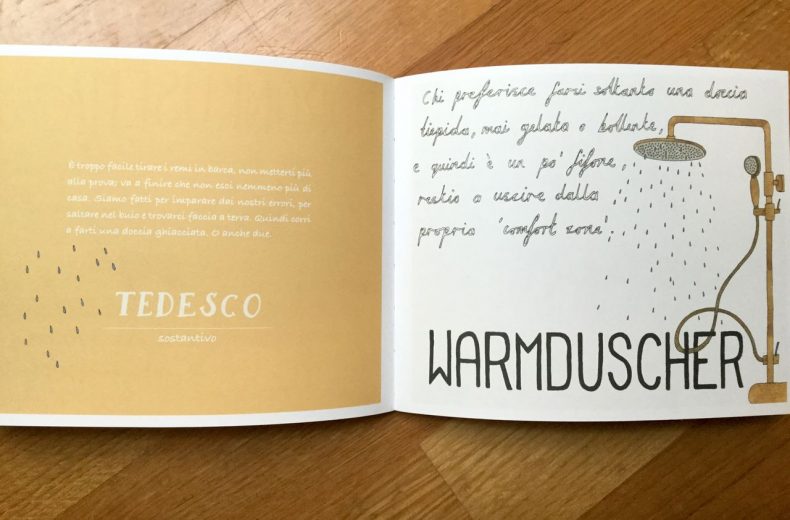 È troppo facile tirare i remi in barca, non metterti più
alla prova; va a finire che non esci nemmeno più di
casa. Siamo fatti per imparare dai nostri errori, per
saltare nel buio e trovarci faccia a terra. Quindi corri
a farti una doccia ghiacciata. O anche due.
TEDESCO
sostantivo
Chi preferisce farsi soltanto una doccia
tiepida, mai gelata o bollente,
e quindi è un po' fifone,
restio a uscire dalla
propria 'comfort zone'.
WARMDUSCHER